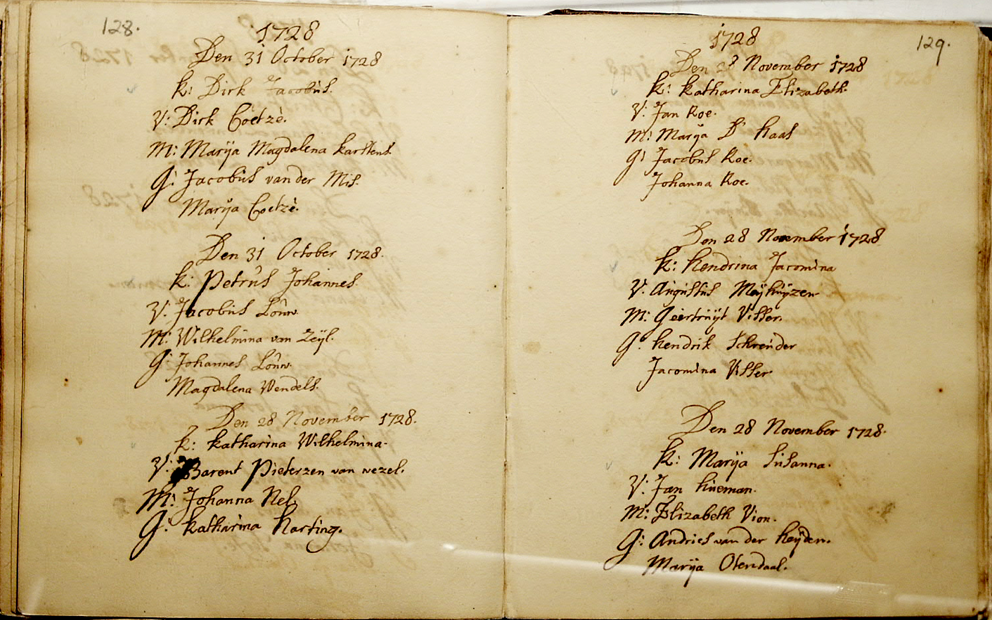 128.
1728
Den 31 October 1728
k: Dirk Jacobus.
V: Dirk Coetzè.
M: Marÿa Magdalena karstens
G: Jacobus van der Mis.
Marÿa Coetzè.
Den 31 October 1728.
k: Petrus Johannes
V: Jacobus Loúw
M: Wilhelmina van Zÿl.
G: Johannes Loúw
Magdalena Wendels.
Den 28 November 1728.
k: katharina Wilhelmina.
V: Barent Pieterzen van wezel.
M: Johanna Nel.
G: katharina Harting.
129.
1728
Den 28 November 1728
k: katharina Elizabeth.
V: Jan Roe.
M: Marÿa D: haas
G: Jacobus Roe.
Johanna Roe.
Den 28 November 1728
k: hendrina Jacomina
V: Augustus Meÿhuÿzen
M: Geertruÿt Visser.
G: hendrik Schreuder
Jacomina Visser
Den 28 November 1728.
k: Marÿa Susanna.
V: Jan hueman.
M: Elizabeth Vion.
G: Andries van der heÿden.
Marÿa Oterdaal.